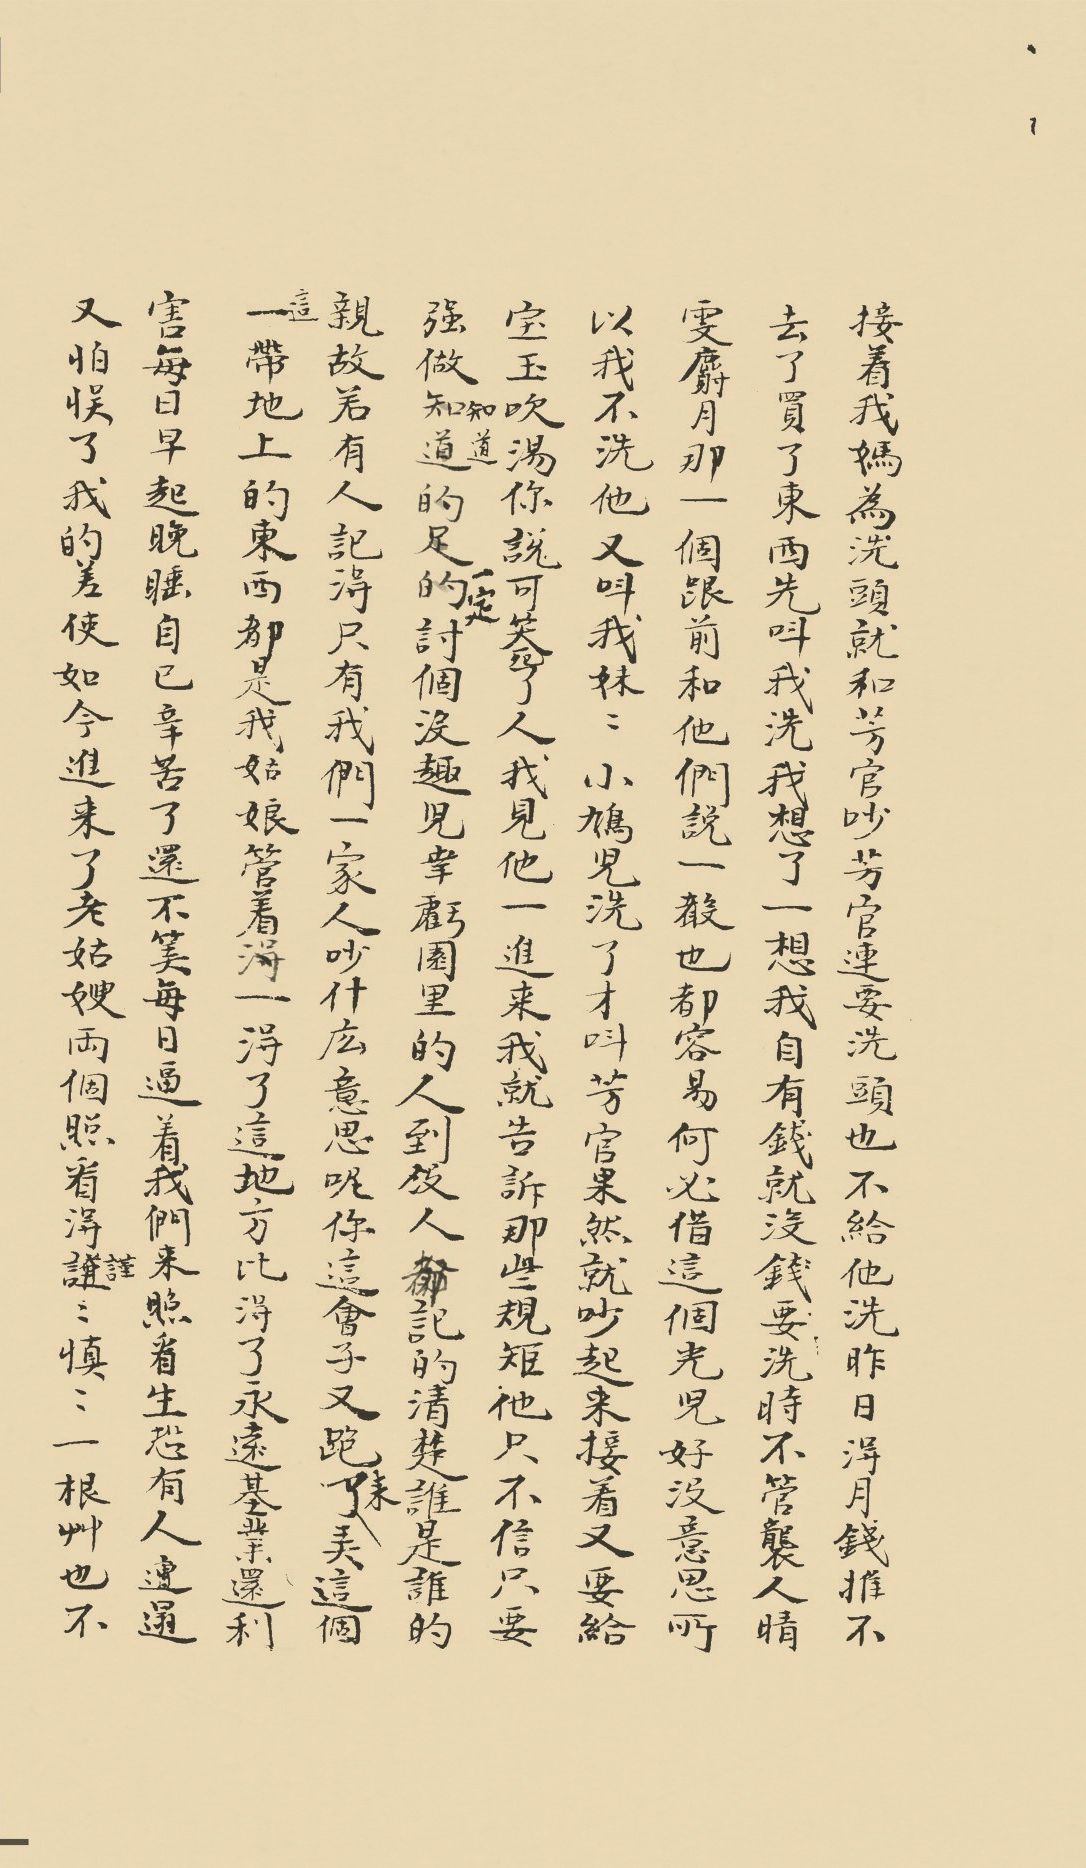 接着我媽為洗頭就和芳官吵芳官連要洗頭也不給他洗昨日淂月錢推不
去了買了東西先呌我洗我想了一想我自有錢就沒錢要洗時不管襲人晴
雯麝月那一個跟前和他們說一聲也都容易何必借這個光兒好沒意思所
以我不洗他又呌我妹〻小鳩兒洗了才呌芳官果然就吵起来接着又要給
宝玉吹湯你說可笑死了人我見他一進来我就告訴那些規矩他只不信只要
强做知道知道的足的一定討個沒趣兒幸虧園里的人到役人都記的清楚誰是誰的
親故若有人記淂只有我們一家人吵什広意思呢你這會子又跑了来弄這個
這一帶地上的東西都是我姑娘管着淂一淂了這地方比淂了永遠基業還利
害每日早起晚睡自己辛苦了還不筭每日逼着我們来照看生恐有人遭遢
又怕悞了我的差使如今進来了老姑嫂両個照看淂謹謹〻慎〻一根艸也不